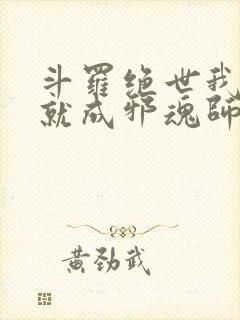 斗羅绝世我
就成邪魂師
黄劲武